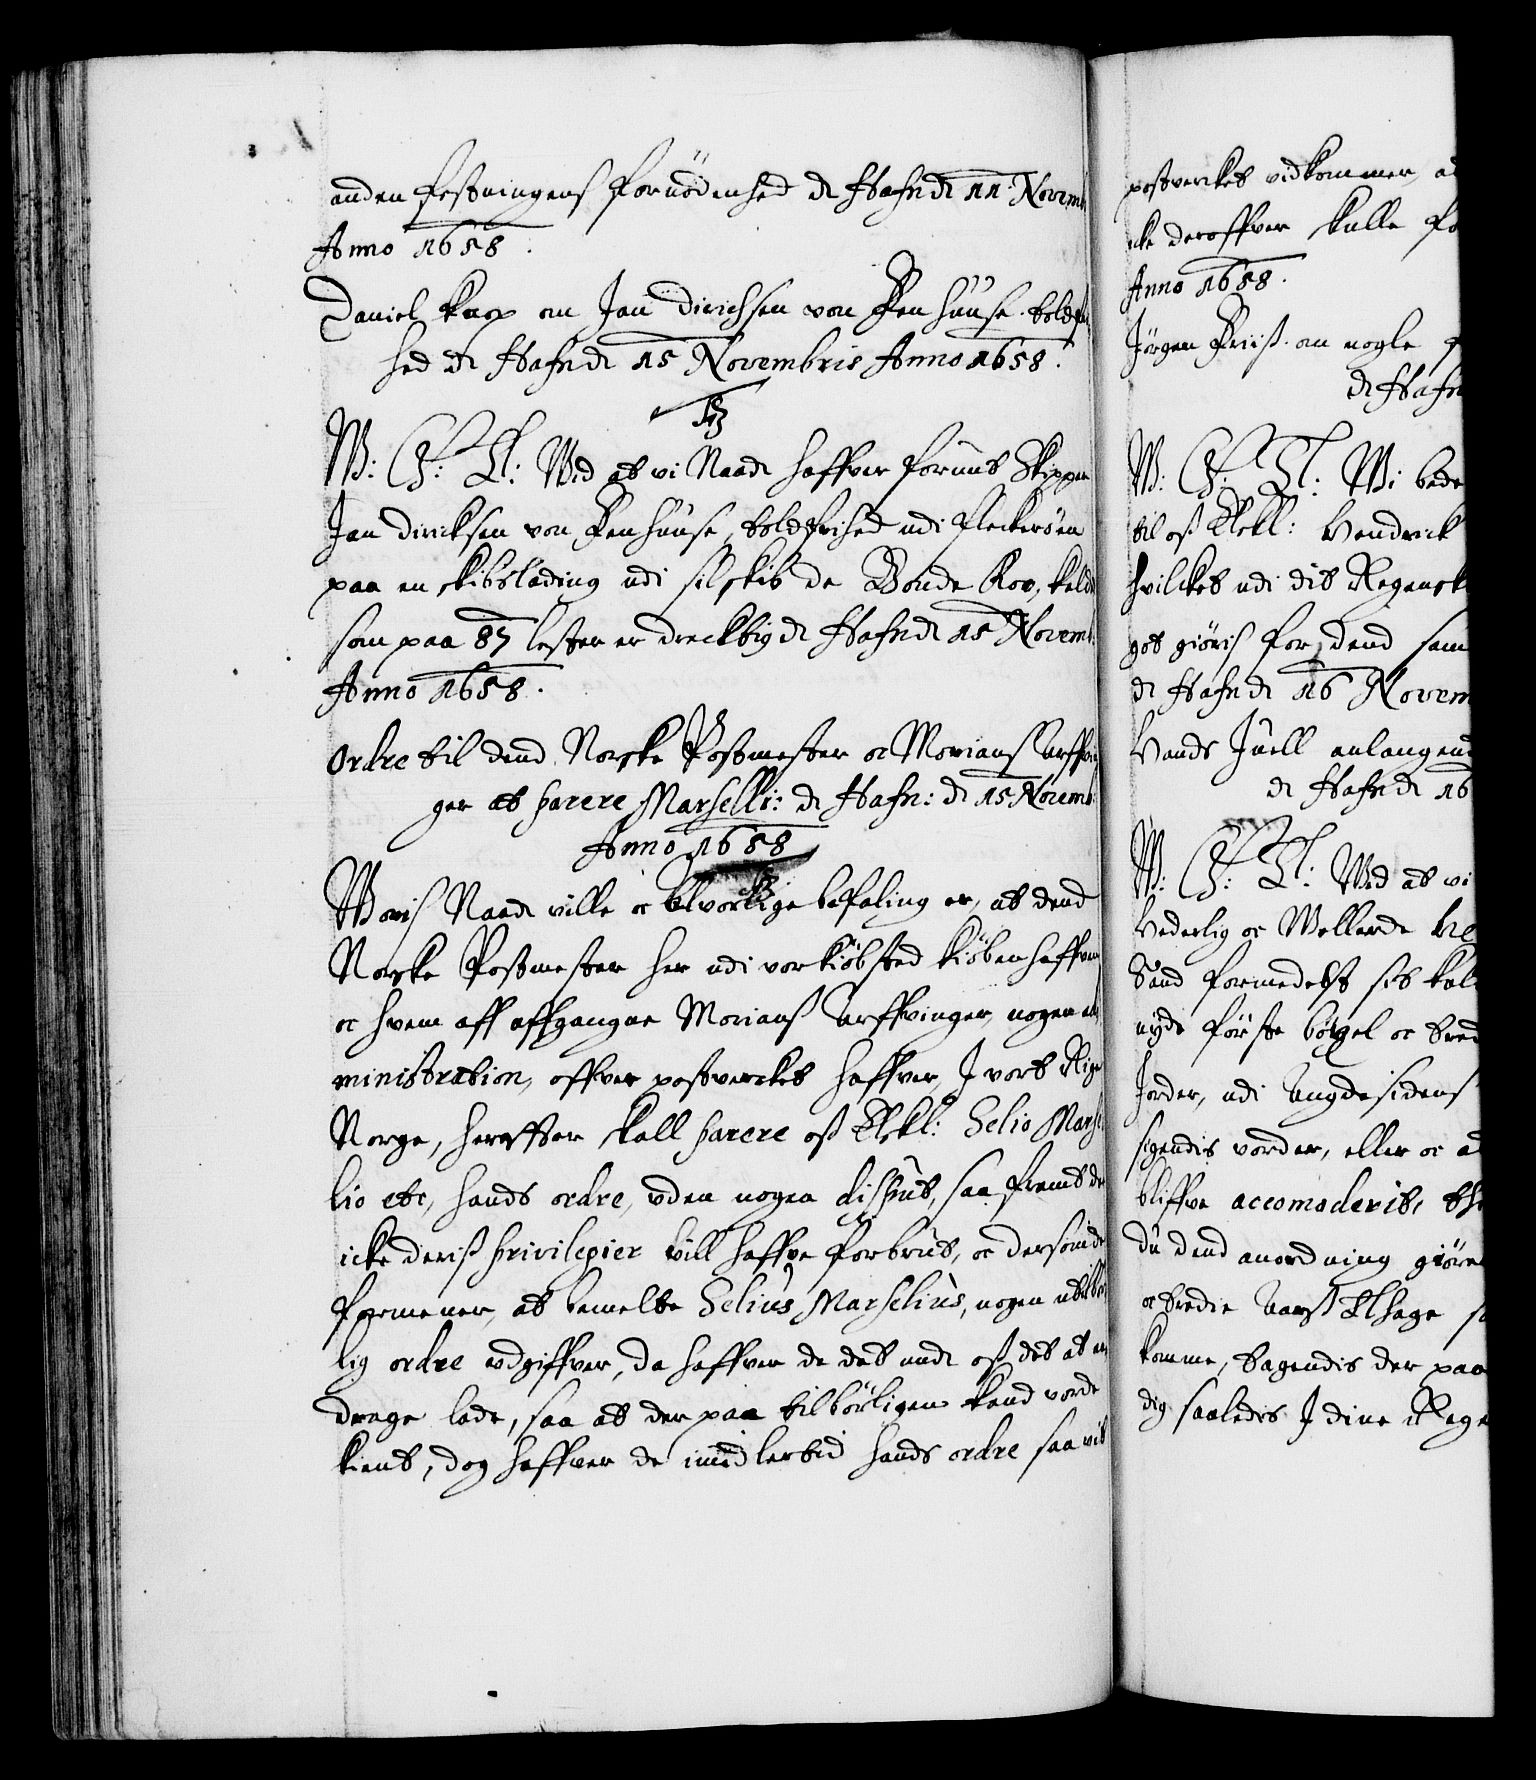 anden festningens fornödenhed de Hafn d 11 Novemb.
Anno 1658.
Daniel Knop om Jan Dirichsen von Penhuuse toldfri
hed de Hafn d 15 Novembris Anno 1658.
W: G: T: Wid at vi Naad haffver forunt Skipper
Jan Diricksen von Penhuuse, toldfrihed udi Fleckeröen
paa en skibslading udi sit skib de Bonde Kov, kaldt
som paa 87 lester er drecktig de Hafn d 15 Novemb.
Anno 1658.
Ordre til dend Norske Postmester oc Morians Arffvin
ger at parere Marselli: de Hafn: d 15 Novemb:
Anno 1658
Woris Naad ville oc alvorlige befaling er, at dend
Norske Postmester her udi vor kiöbsted Kiöbenhaffven
oc hvem aff affgangne Morians Arffvinger, nogen ad
ministration, offver postverket haffver, J vort Rige
Norge, hereffter skall parere oss Elskl: Selio Marse
lio etc, hands ordre, uden nogen disput, saa fremt de
icke deris privilegier vill haffve forbrut, oc dersom de
formener, at bemelte Selius Marselius, nogen utilbör
lig ordre udgiffver, da haffver de det udi oss det at an
drage lade, saa at der paa tilbörligen kand vorde
kient, dog haffver de imidlertid hands ordre saa vit
postverket vidkommer, ad
icke deroffver skulle fo
Anno 1658.
Jörgen Friis om nogle
de Hafn
W: G: T: Wi bede
til oss Elskl: Hendrick
hvilket udi dit Regensk
got giöris for, dend sam
de Hafn d 16 Novem
Hands Juell anlangend
de Hafn d 16
W: G: T: Wid at vi
Hederlig oc Wellerde He
Sand formedelst sit kal
nyde förste bögsel oc tred
Jorder, udi
sigendis vorder, eller oc ad
bliffve accomoderit, th
du dend anordning giöre
oc tredie Aars Tage
komme, tagendis der paa
dig saaledis J dine Rege